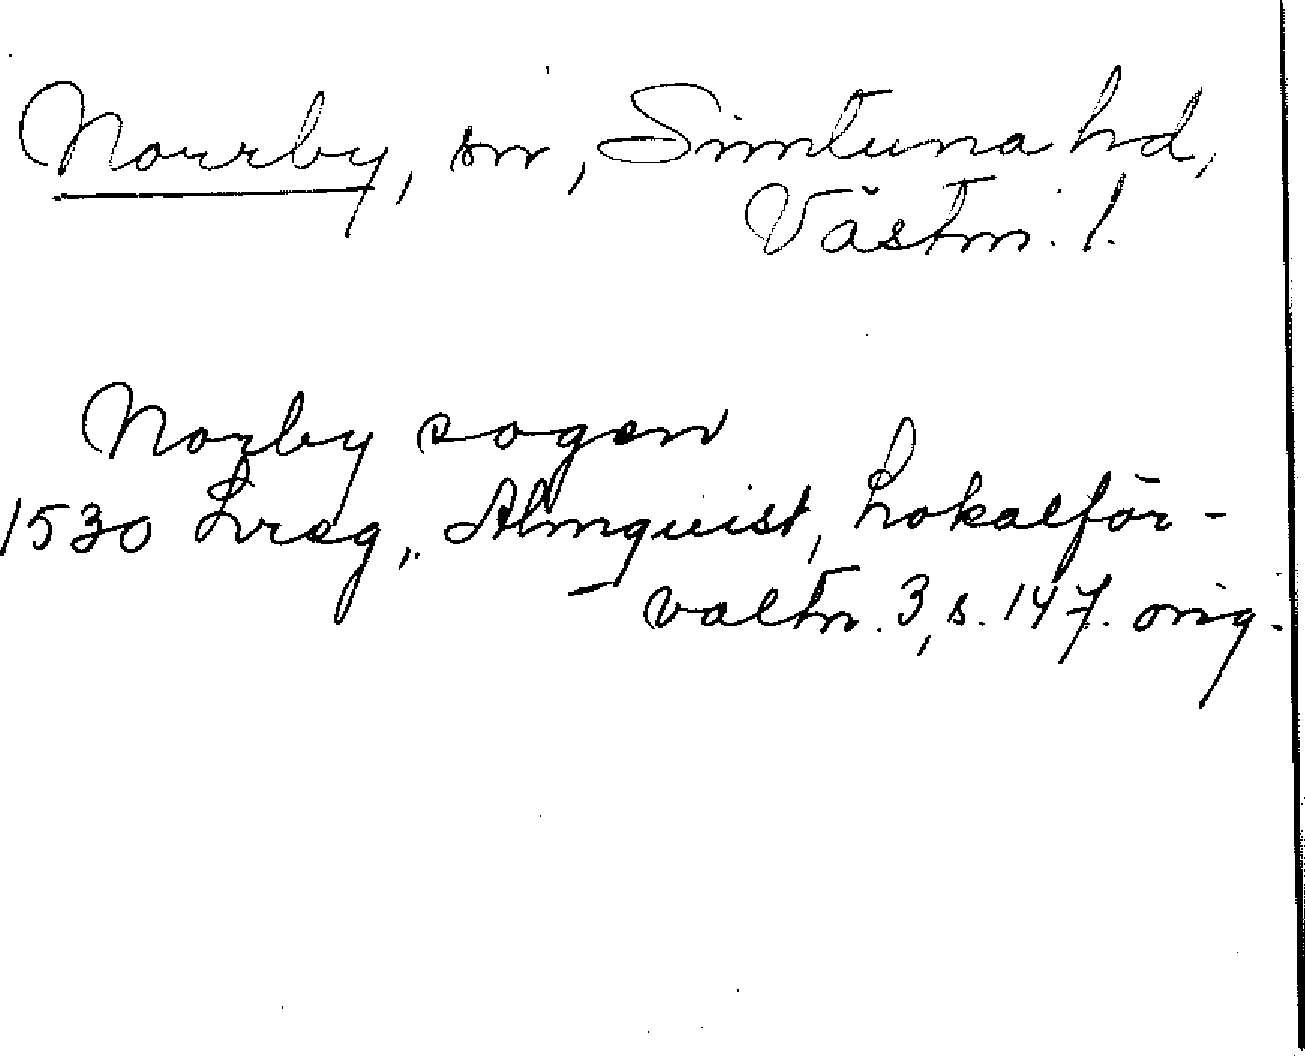 Norrby, sn, Simtuna hd,
Västm. l.
Norby sogen
1530 Lreg., Almquist, Lokalför-
valtn. 3, s. 147. orig.